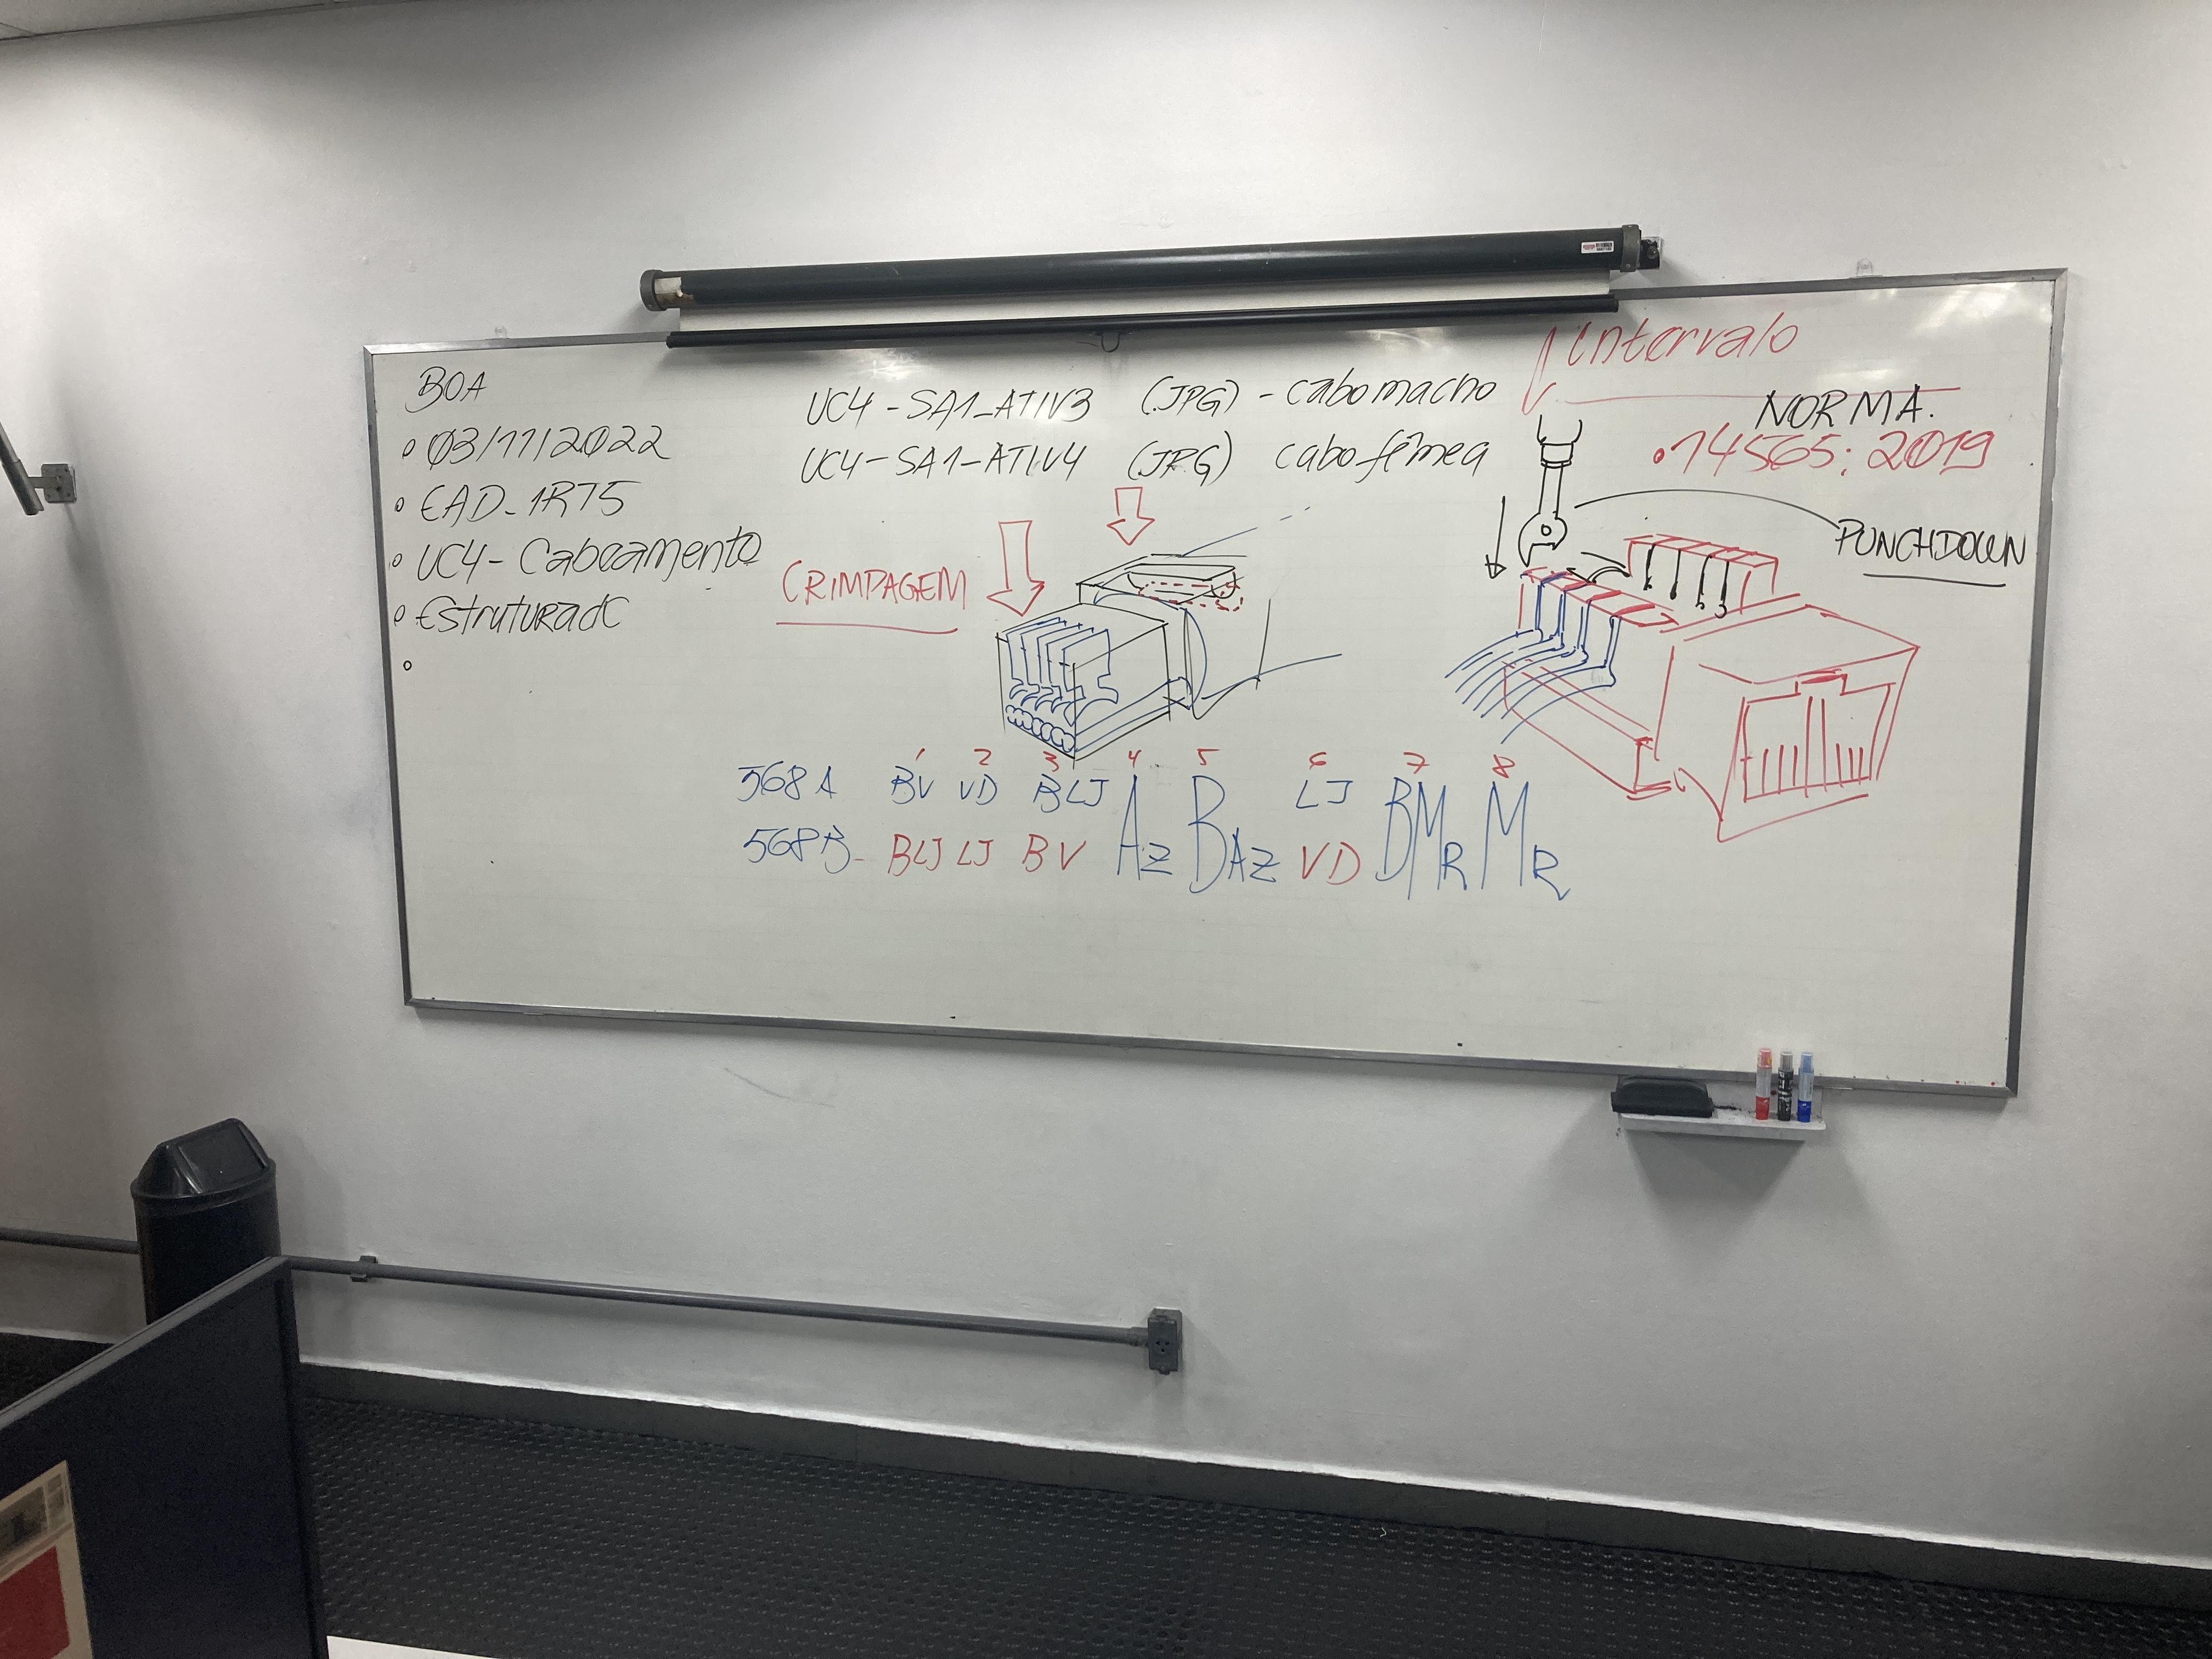 BOA
03/11/2022
EAD-1RT5
UC4 - Cabeamento
Estruturado
UC4 - SA1_ATIV3 (JPG) - cabo macho
UC4 - SA1_ATIV4 (JPG) cabo fêmea
intervalo
NORMA.
14565: 2019
PUNCHDOWN
CRIMPAGEM
1 2 3 4 5 6 7 8
568A BV VD BLJ Az BAz LJ BMR MR
568B- BLJ LJ BV VD